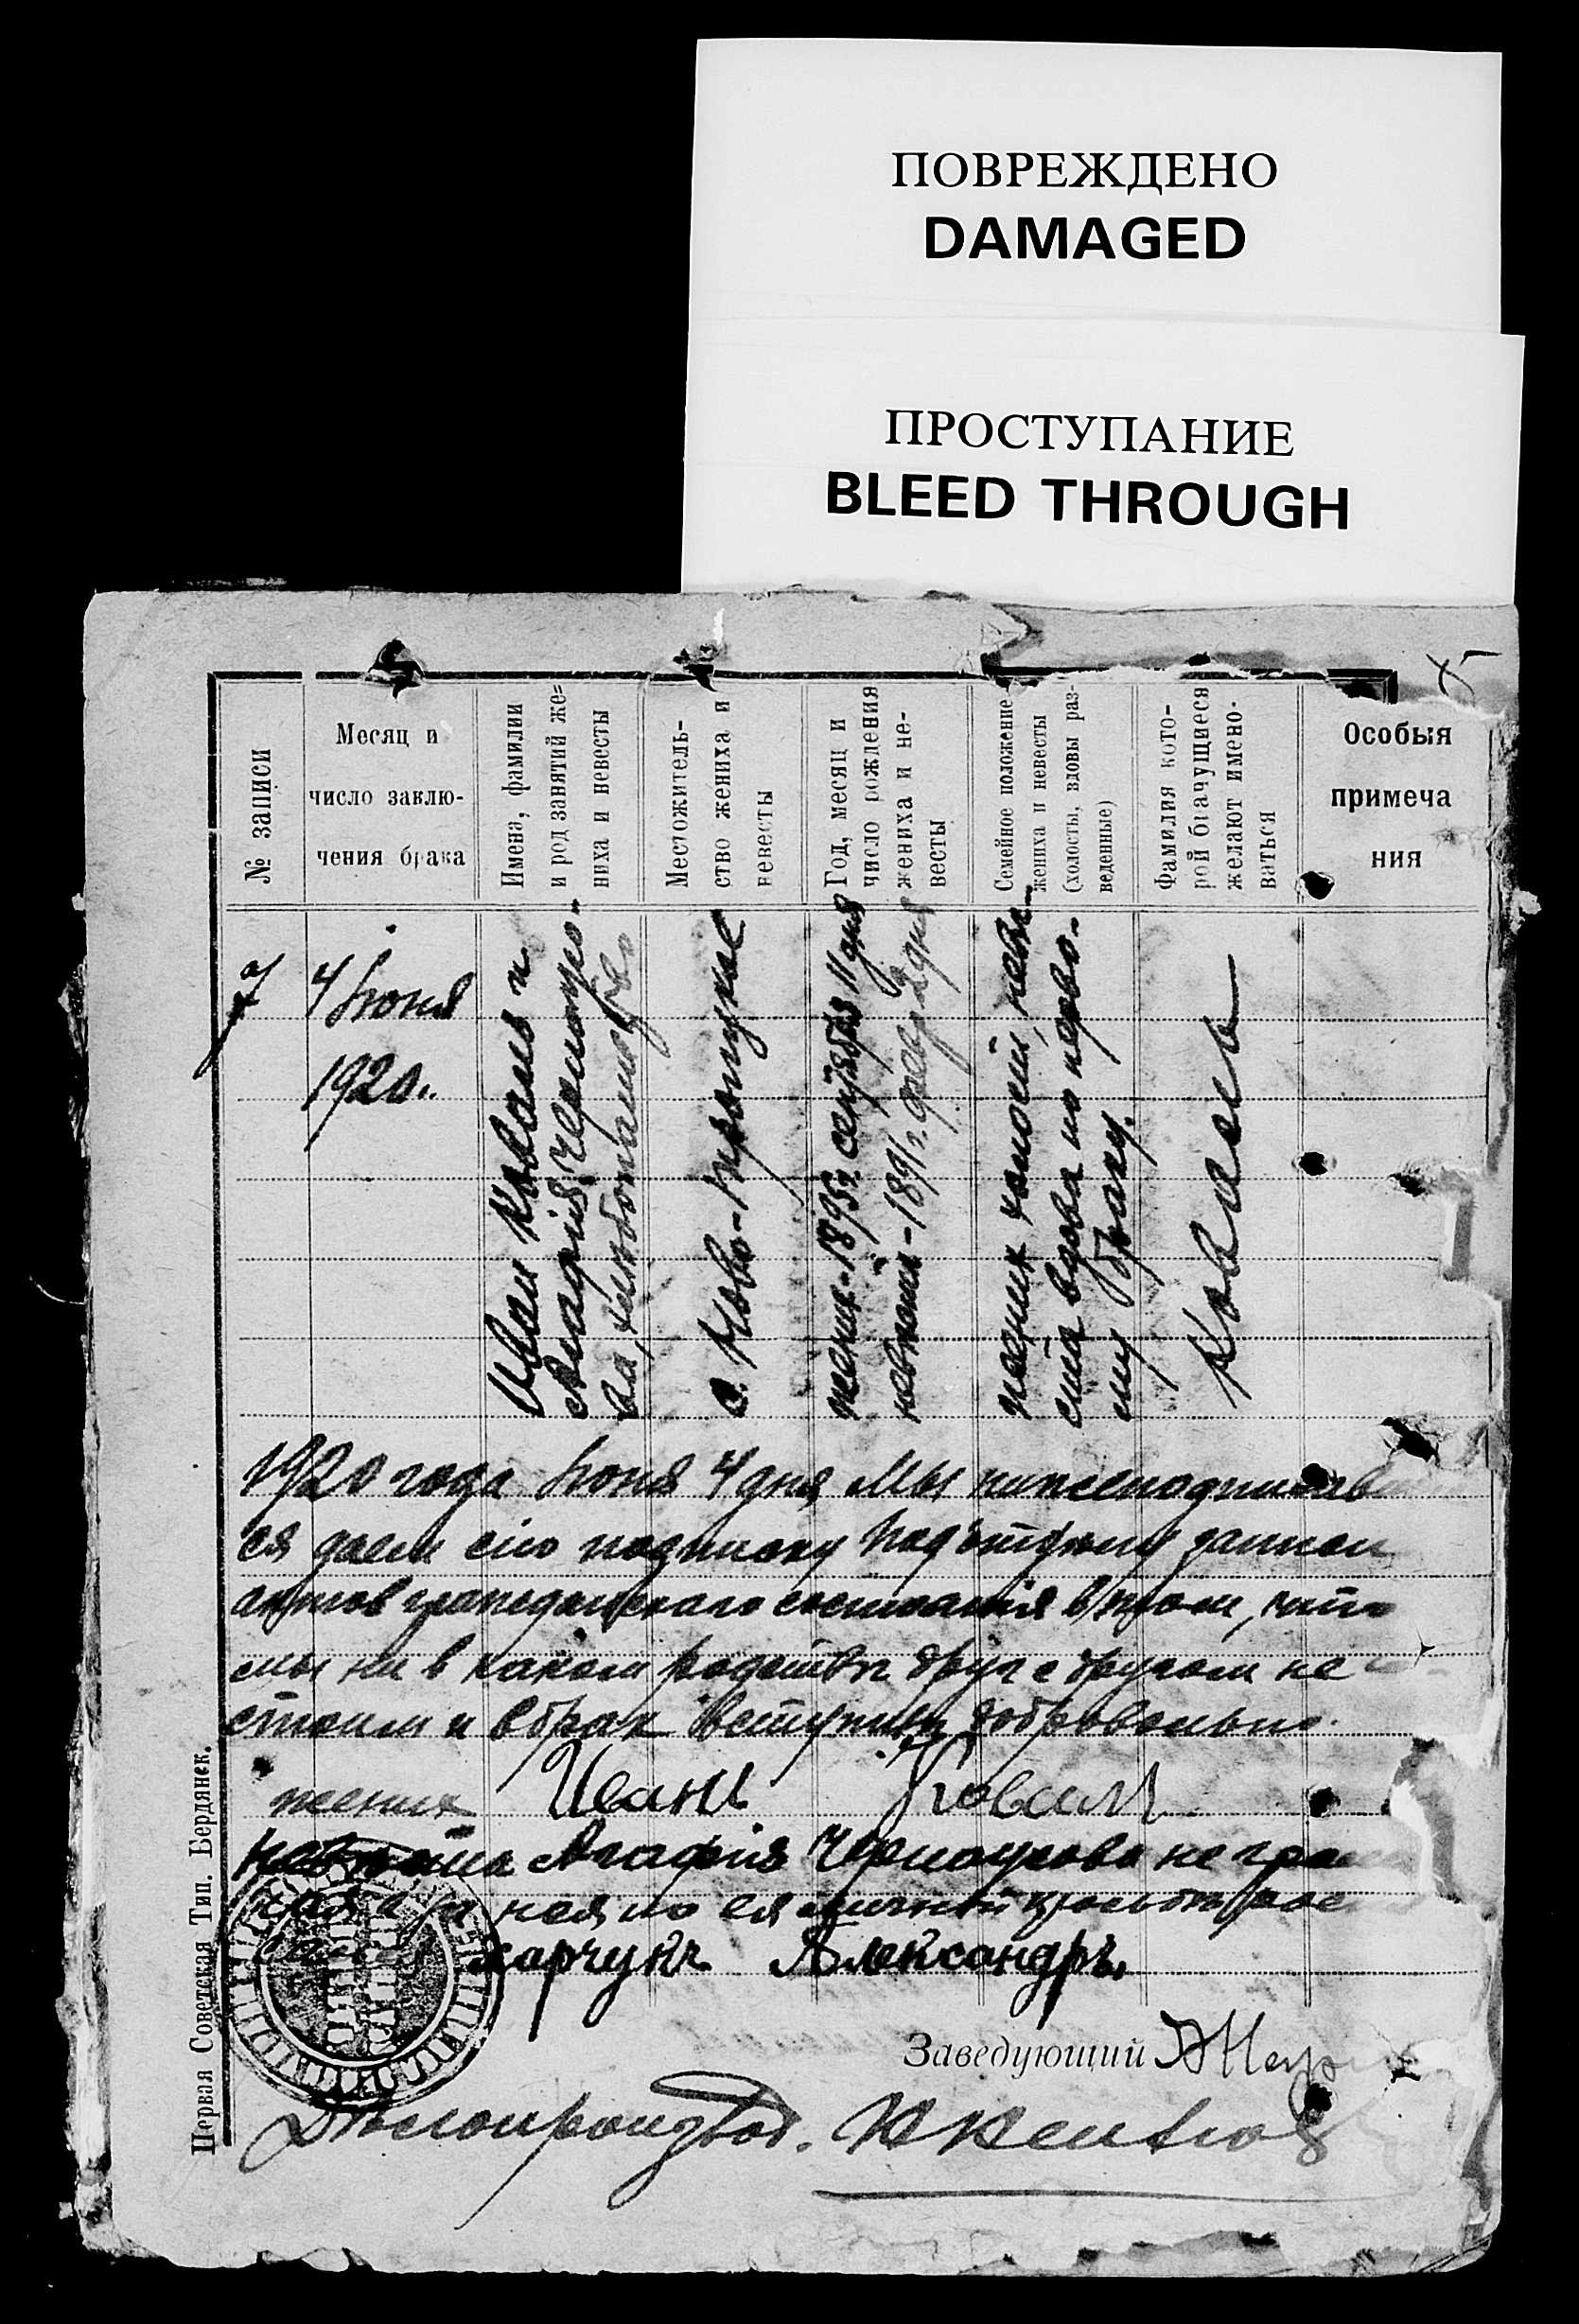 ПОВРЕЖДЕНО
DAMAGED
ПРОСТУПАНИЕ
BLEED THROUGH
№ записи
Месяц и
число заклю-
чения брака
Имена, фамилии
и род занятий же-
ниха и невесты
Местожитель-
ство жениха и
невесты
Год, месяц и
число рождения
жениха и не-
весты
Семейное положение
жениха и невесты
(холосты, вдовы раз-
веденные)
Фамилия кото-
рой брачущиеся
желают имено-
ваться
Особыя
примеча
ния
7
4 Июня
1920г.
Иван Коваль и
Агафія Черноуро-
ва, хлебопашество
с. Ново-Троицкое
жених-1895г. сентября 11 дня
невеста-1891г. февр 2 дня
жених холост, неве-
ста вдова по перво-
му браку.
Коваль
1920 года Июня 4 дня Мы нижеподписав
ся даем сію подписку Подотделу записи
актов гражданскаго состоянія в том, что
мы ни в каком родстве друг с другом не
стоим и в брак вступили добровольно.
жених Иванъ Ковал
невеста Агафія Черноурова не грам
а за нея по ея личной просьбе рос
Харчукъ Александръ.
Заведующий
Делопроизвод.
Первая Советская Тип. Бердянск.